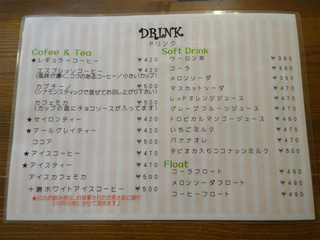 DRINK
ドリンク
Cofee & Tea
★レギュラーコーヒー ¥420
エスプレッソコーヒー ¥420
(風味が濃く、コクのあるコーヒー/小さいカップ)
カプチーノ ¥500
(シナモンスティックで混ぜてお召し上がり下さい)
カフェモカ ¥500
(カップの底にチョコソースが入ってます)
★セイロンティー ¥470
★アールグレイティー ¥470
ココア ¥500
★アイスコーヒー ¥470
★アイスティー ¥470
アイスカフェモカ ¥500
十勝ホワイトアイスコーヒー ¥500
Soft Drink
ウーロン茶 ¥390
コーラ ¥390
メロンソーダ ¥390
マスカットソーダ ¥470
レッドオレンジジュース ¥470
グレープフルーツジュース ¥470
トロピカルマンゴージュース ¥490
いちごミルク ¥470
バナナオレ ¥470
タピオカ入りココナッツミルク ¥500
Float
コーラフロート ¥490
メロンソーダフロート ¥490
コーヒーフロート ¥490